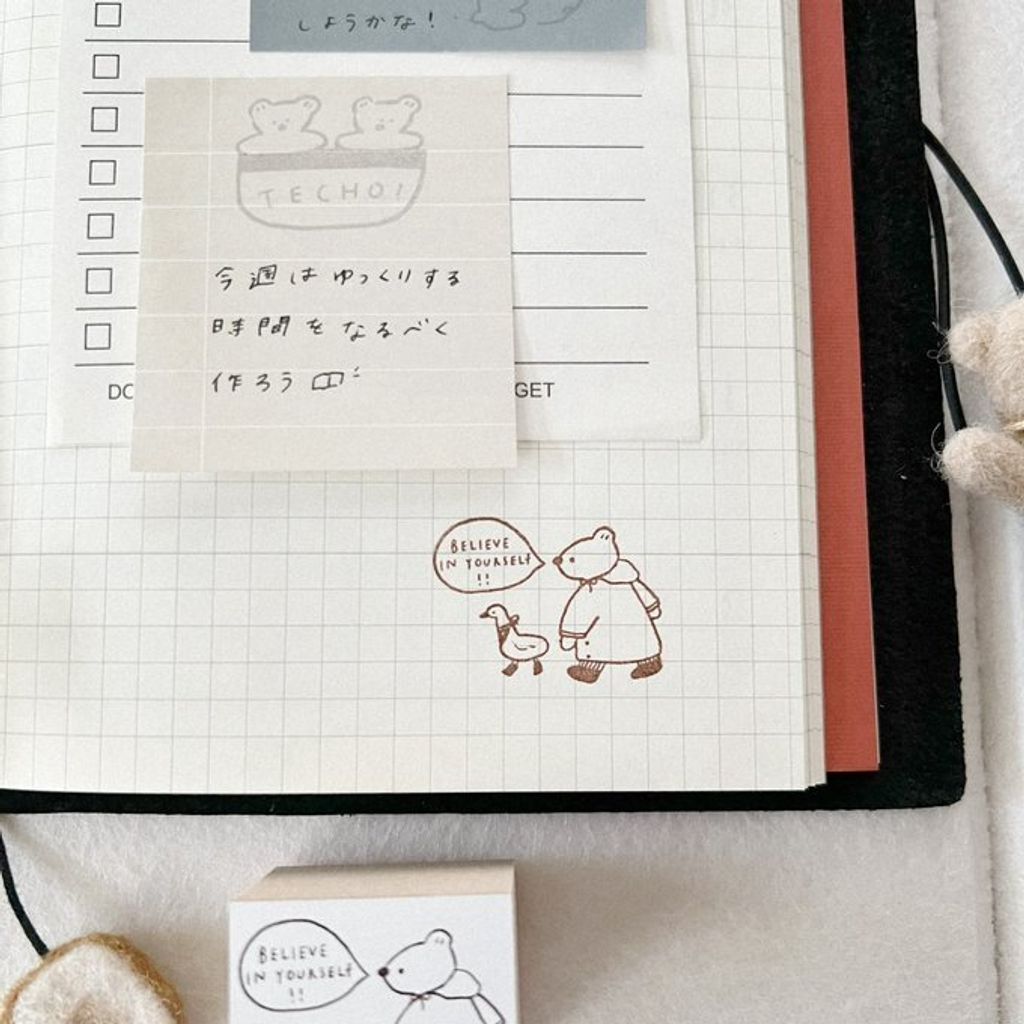 しょうかな!
TECHO!
今週はゆっくりする
時間をなるべく
作ろう
DO
GET
BELIEVE
IN YOURSELF
!!
BELIEVE
IN YOURSELF
!!